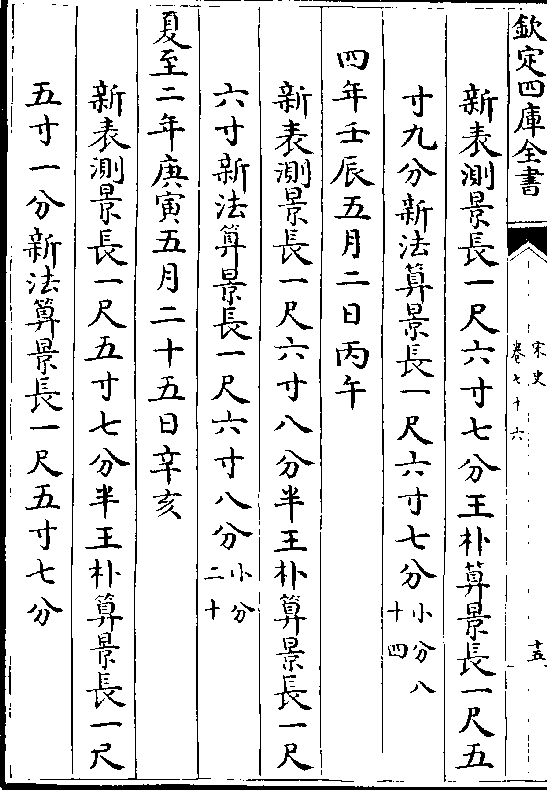 欽定四庫全書
宋史
卷七十六
十五
新表測景長一尺六寸七分王朴算景長一尺五
寸九分新法算景長一尺六寸七分小分八
十四
四年壬辰五月二日丙午
新表測景長一尺六寸八分半王朴算景長一尺
六寸新法算景長一尺六寸八分小分
二十
夏至二年庚寅五月二十五日辛亥
新表測景長一尺五寸七分半王朴算景長一尺
五寸一分新法算景長一尺五寸七分